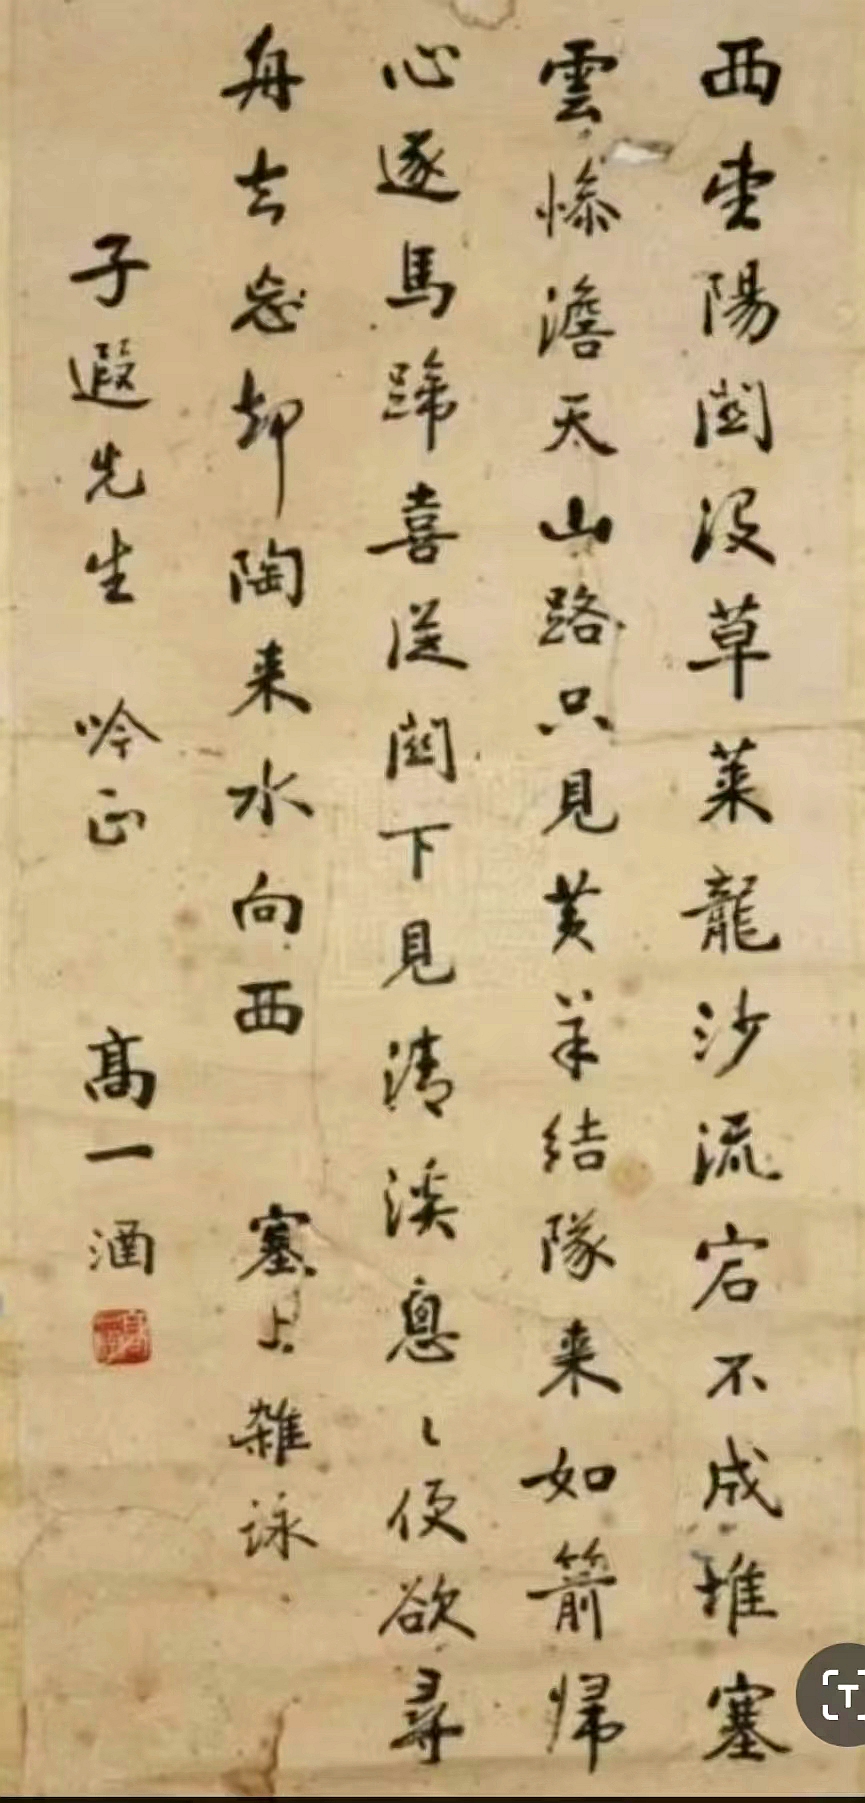 西出陽關沒草萊龍沙流宕不成堆塞
雲慘澹天山路只見黃羊結隊来如箭歸
心逐馬蹄喜從關下見清溪悤〻便欲尋
舟去忘却陶来水向西 塞上雜詠
子遐先生 吟正 高一涵